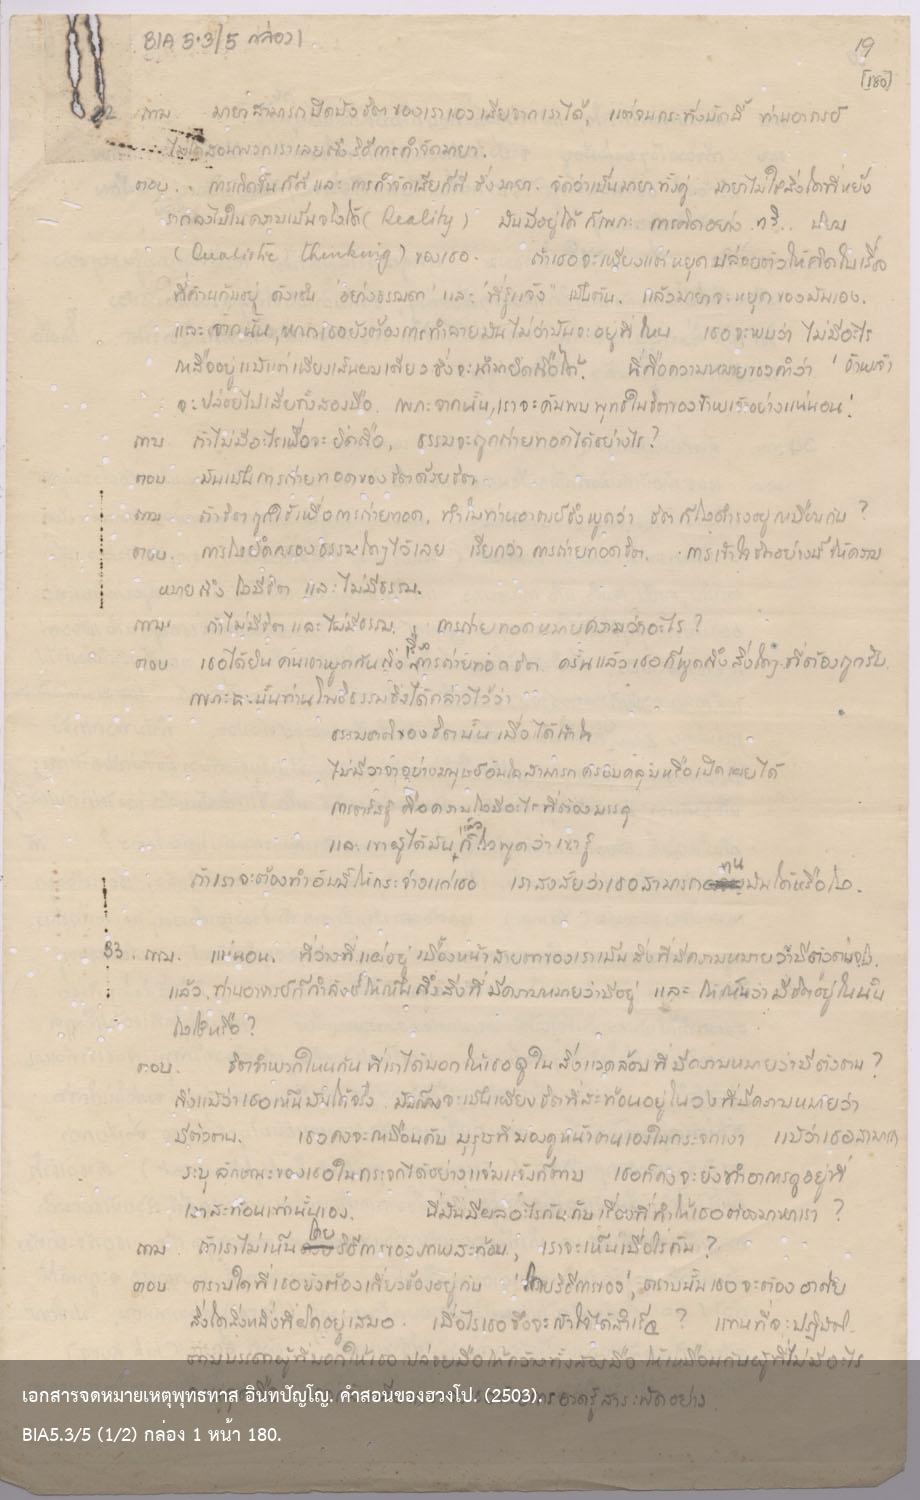 BIA 5.3/5 กล่อง 1
19
[180]
32 ถาม มายาสามารถปิดบังจิตของเราเองเสียจากเราได้, แต่จนกระทั่งบัดนี้ ท่านอาจารย์
ไม่ได้สอนพวกเราเลยถึงวิธีการกำจัดมายา.
ตอบ. การเกิดขึ้นก็ดี และ การกำจัดเสียก็ดี ซึ่งมายา. จัดว่าเป็นมายาทั้งคู่. มายาไม่ใช่สิ่งใดที่หยั่ง
รากลงไปในความเป็นจริงได้ (Reality) มันมีอยู่ได้ ก็เพราะ การคิดอย่าง นิยม
(Dualistic thinking) ของเธอ. ถ้าเธอจะเพียงแต่หยุดปล่อยตัวให้คิดในเรื่อง
ที่ค้านกันอยู่ ดังเช่น "อย่างธรรมดา" และ "ที่รู้แจ้ง" เป็นต้น. แล้วมายาจะหยุดของมันเอง.
และจากนั้น, หากเธอยังต้องการทำลายมันไม่ว่ามันจะอยู่ที่ไหน เธอจะพบว่า ไม่มีอะไร
เหลืออยู่แม้แต่เพียงเส้นผมเดียวซึ่งจะทำการยึดถือได้. นี่คือความหมายของคำว่า 'ข้าพเจ้า
จะปล่อยไปเสียทั้งสองมือ. เพราะจากนั้น, เราจะค้นพบพุทธในจิตของข้าพเจ้าอย่างแน่นอน'.
ถาม ถ้าไม่มีอะไรเพื่อจะยึดถือ, ธรรมจะถูกถ่ายทอดได้อย่างไร?
ตอบ มันเป็นการถ่ายทอดของจิตด้วยจิต
ถาม ถ้าจิตถูกใช้เพื่อการถ่ายทอด, ทำไมท่านอาจารย์จึงพูดว่า จิตก็ไม่ดำรงอยู่เหมือนกัน?
ตอบ. การไม่ยึดครองธรรมใดๆไว้เลย เรียกว่า การถ่ายทอดจิต. การเข้าใจจิตอย่างนี้ ให้ความ
หมายถึง ไม่มีจิต และไม่มีธรรม.
ถาม ถ้าไม่มีจิตและไม่มีธรรม, การถ่ายทอดหมายความว่าอะไร?
ตอบ เธอได้ยินคนเขาพูดกันถึงเรื่องการถ่ายทอดจิต ครั้นแล้วเธอก็พูดถึงสิ่งใดๆที่ต้องถูกรับ.
เพราะฉะนั้นท่านโพธิธรรมจึงได้กล่าวไว้ว่า
ธรรมชาติของจิตนั้น เมื่อได้เข้าใจ
ไม่มีวาจาอย่างมนุษย์อันใดสามารถครอบคลุมหรือเปิดเผยได้
การตรัสรู้ คือความไม่มีอะไรที่ต้องบรรลุ
และเขาผู้ได้มันแล้ว ก็ไม่พูดว่าเขารู้
ถ้าเราจะต้องทำอันนี้ให้กระจ่างแก่เธอ เราสงสัยว่าเธอสามารถทนมันได้หรือไม่.
33. ถาม. แน่นอน. ที่ว่างที่แผ่อยู่ เบื้องหน้าสายตาของเราเป็น สิ่งที่มีความหมายว่ามีตัวตน
แล้ว, ท่านอาจารย์ก็กำลังชี้ให้เห็นถึงสิ่งที่มีความหมายว่ามีอยู่ และ ให้เห็นว่ามีจิตอยู่ในนั้น
ไม่ใช่หรือ?
ตอบ. จิตจำพวกไหนกัน ที่เราได้บอกให้เธอดูใน สิ่งแวดล้อมที่มีความหมายว่ามีตัวตน?
ถึงแม้ว่าเธอเห็นมันได้จริง มันก็จะเป็นเพียงจิตที่สะท้อนอยู่ในวงที่มีความหมายว่า
มีตัวตน. เธอคงจะเหมือนกับ บุรุษที่มองดูหน้าตนเองในกระจกเงา แม้ว่าเธอสามารถ
ระบุลักษณะของเธอในกระจกได้อย่างแจ่มแจ้งก็ตาม เธอก็คงจะยังทำอาการดูอยู่ที่
เงาสะท้อนเท่านั้นเอง. นี่มันมีผลอะไรกันกับเรื่องที่ทำให้เธอต้องมาหาเรา?
ถาม ถ้าเราไม่เห็นโดยวิธีการของภาพสะท้อน, เราจะเห็นเมื่อไรกัน?
ตอบ ตราบใดที่เธอยังต้องเกี่ยวข้องอยู่กับ 'โดยวิธีการของ', ตราบนั้นเธอจะต้อง อาศัย
สิ่งใดสิ่งหนึ่งที่ อยู่เสมอ. เมื่อไรเธอจึงจะเข้าใจได้สำเร็จ? แทนที่จะปฏิบัติ
ตามบรรดาผู้ที่บอกให้เธอ ปล่อยมือให้กว้างทั้งสองมือ ให้เหมือนกับผู้ที่ไม่มีอะไร
อวดรู้สาระพัดอย่าง.
เอกสารจดหมายเหตุพุทธทาส อินทปัญโญ. คำสอนของฮวงโป. (2503).
BIA5.3/5 (1/2) กล่อง 1 หน้า 180.